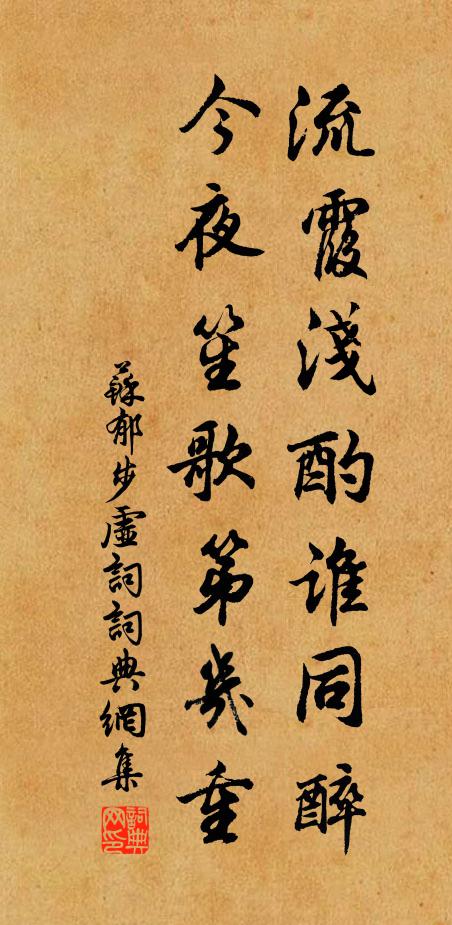 流霞淺酌谁同醉
今夜笙歌第幾重
蘇郁步虛詞詞典網集
詞典网印